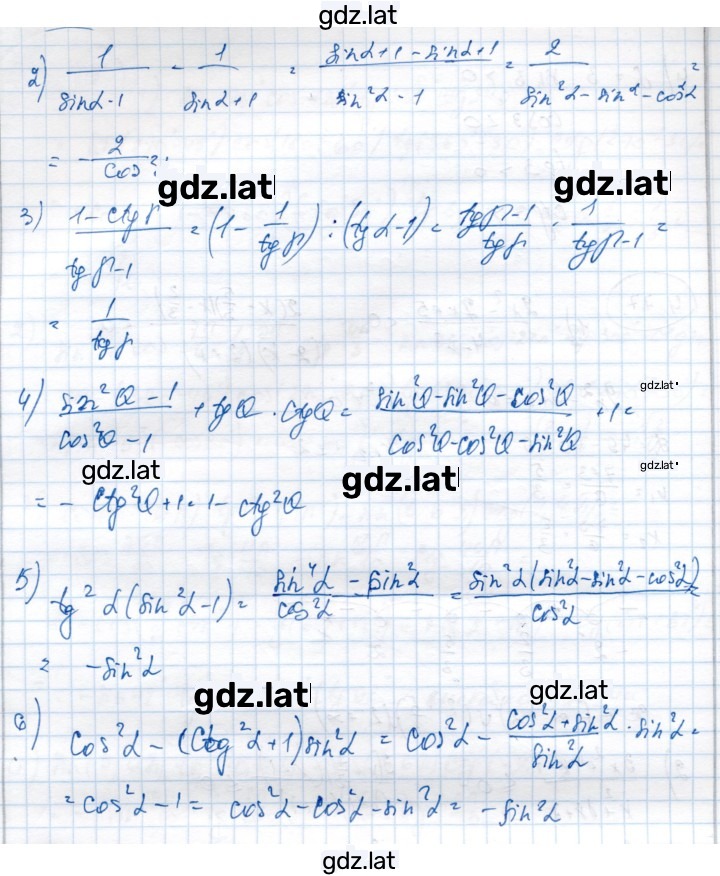 gdz.lat
2) 1/(sinα-1) - 1/(sinα+1) = (sinα+1-sinα+1)/(sin²α-1) = 2/(sin²α-sin²-cos²α) =
= -2/cos²
gdz.lat gdz.lat
3) (1-ctgβ)/(tgβ-1) = (1 - 1/tgβ) : (tgα-1) = (tgβ-1)/tgβ · 1/(tgβ-1) =
= 1/tgβ
4) (sin²Q-1)/(cos²Q-1) + tgQ · ctgQ = (sin²Q-sin²Q-cos²Q)/(cos²Q-cos²Q-sin²Q) + 1 =
gdz.lat
gdz.lat gdz.lat gdz.lat
= -ctg²Q+1 = 1-ctg²Q
5) tg²α(sin²α-1) = sin⁴α/cos²α - sin²α = sin²α(sin²α-sin²α-cos²α)/cos²α
= -sin²α
gdz.lat gdz.lat
6) cos²α-(ctg²α+1)sin²α = cos²α - (cos²α+sin²α)/sin²α · sin²α =
= cos²α-1 = cos²α-cos²α-sin²α = -sin²α
gdz.lat